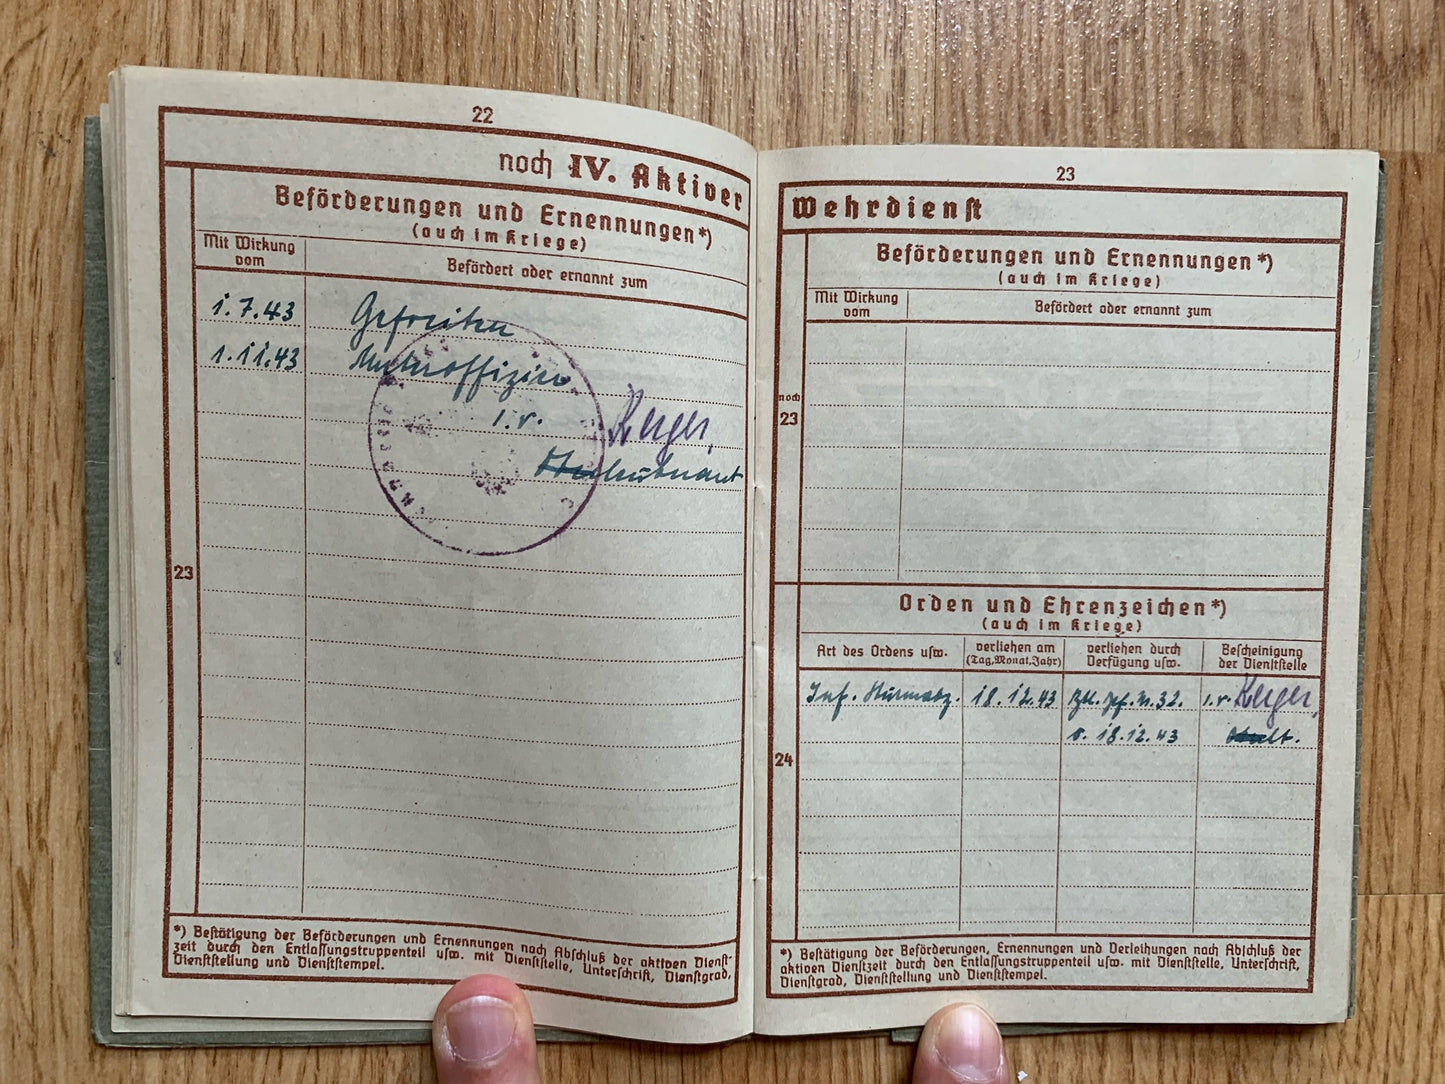 22
noch IV. Aktiver
Beförderungen und Ernennungen*)
(auch im Kriege)
Mit Wirkung
vom
Befördert oder ernannt zum
1.7.43 Gefreiten
1.11.43 Unteroffizier
i.V.
leutnant
23
*) Bestätigung der Beförderungen und Ernennungen nach Abschluß der aktiven Dienst-
zeit durch den Entlassungstruppenteil usw. mit Dienststelle, Unterschrift, Dienstgrad,
Dienststellung und Dienststempel.
23
Wehrdienst
Beförderungen und Ernennungen*)
(auch im Kriege)
Mit Wirkung
vom
Befördert oder ernannt zum
noch
23
Orden und Ehrenzeichen*)
(auch im Kriege)
Art des Ordens usw.
verliehen am
(Tag, Monat, Jahr)
verliehen durch
Verfügung usw.
Bescheinigung
der Dienststelle
Inf. Sturmabz. 18.12.43 Btl. N. 32. i.V.
v. 18.12.43
24
*) Bestätigung der Beförderungen, Ernennungen und Verleihungen nach Abschluß der
aktiven Dienstzeit durch den Entlassungstruppenteil usw. mit Dienststelle, Unterschrift,
Dienstgrad, Dienststellung und Dienststempel.